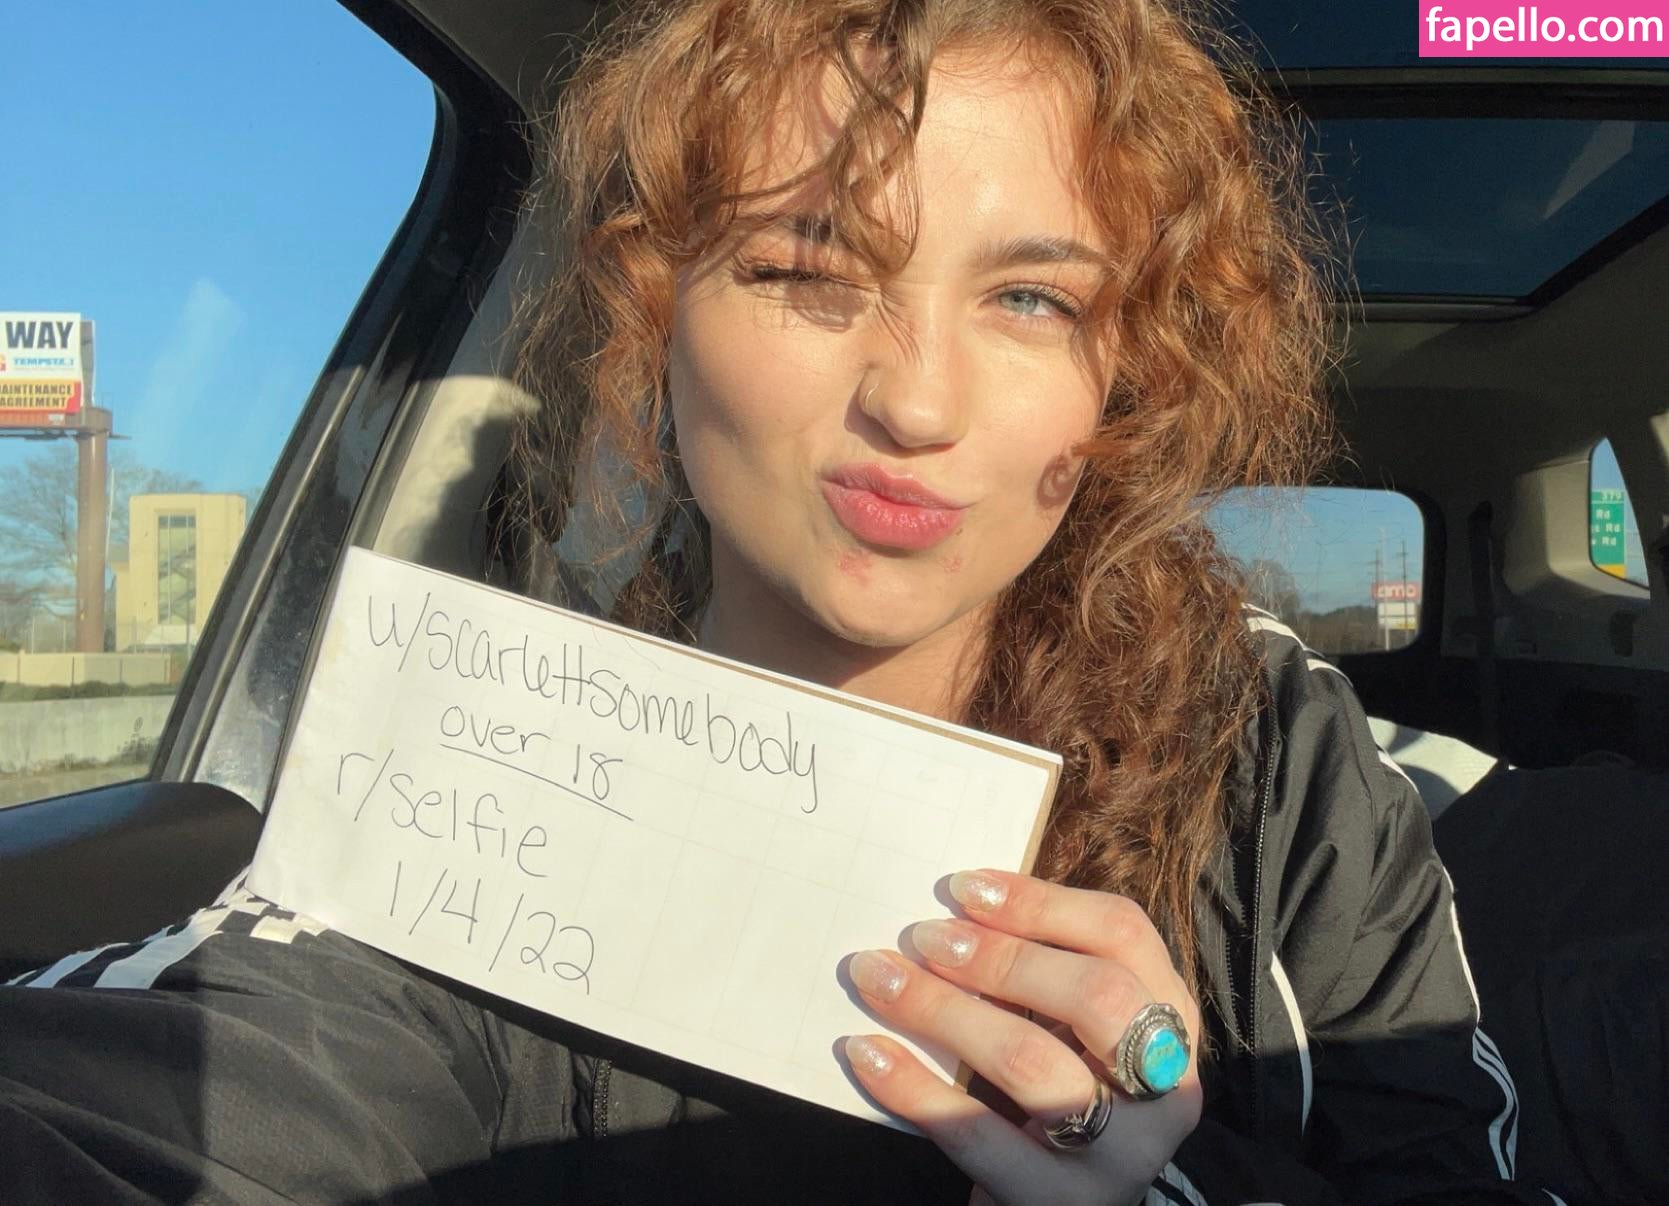 fapello.com
WAY
TEMPSTAR
MAINTENANCE
AGREEMENT
u/scarlettsomebody
over 18
r/selfie
1/4/22
379
Rd
Rd
Rd